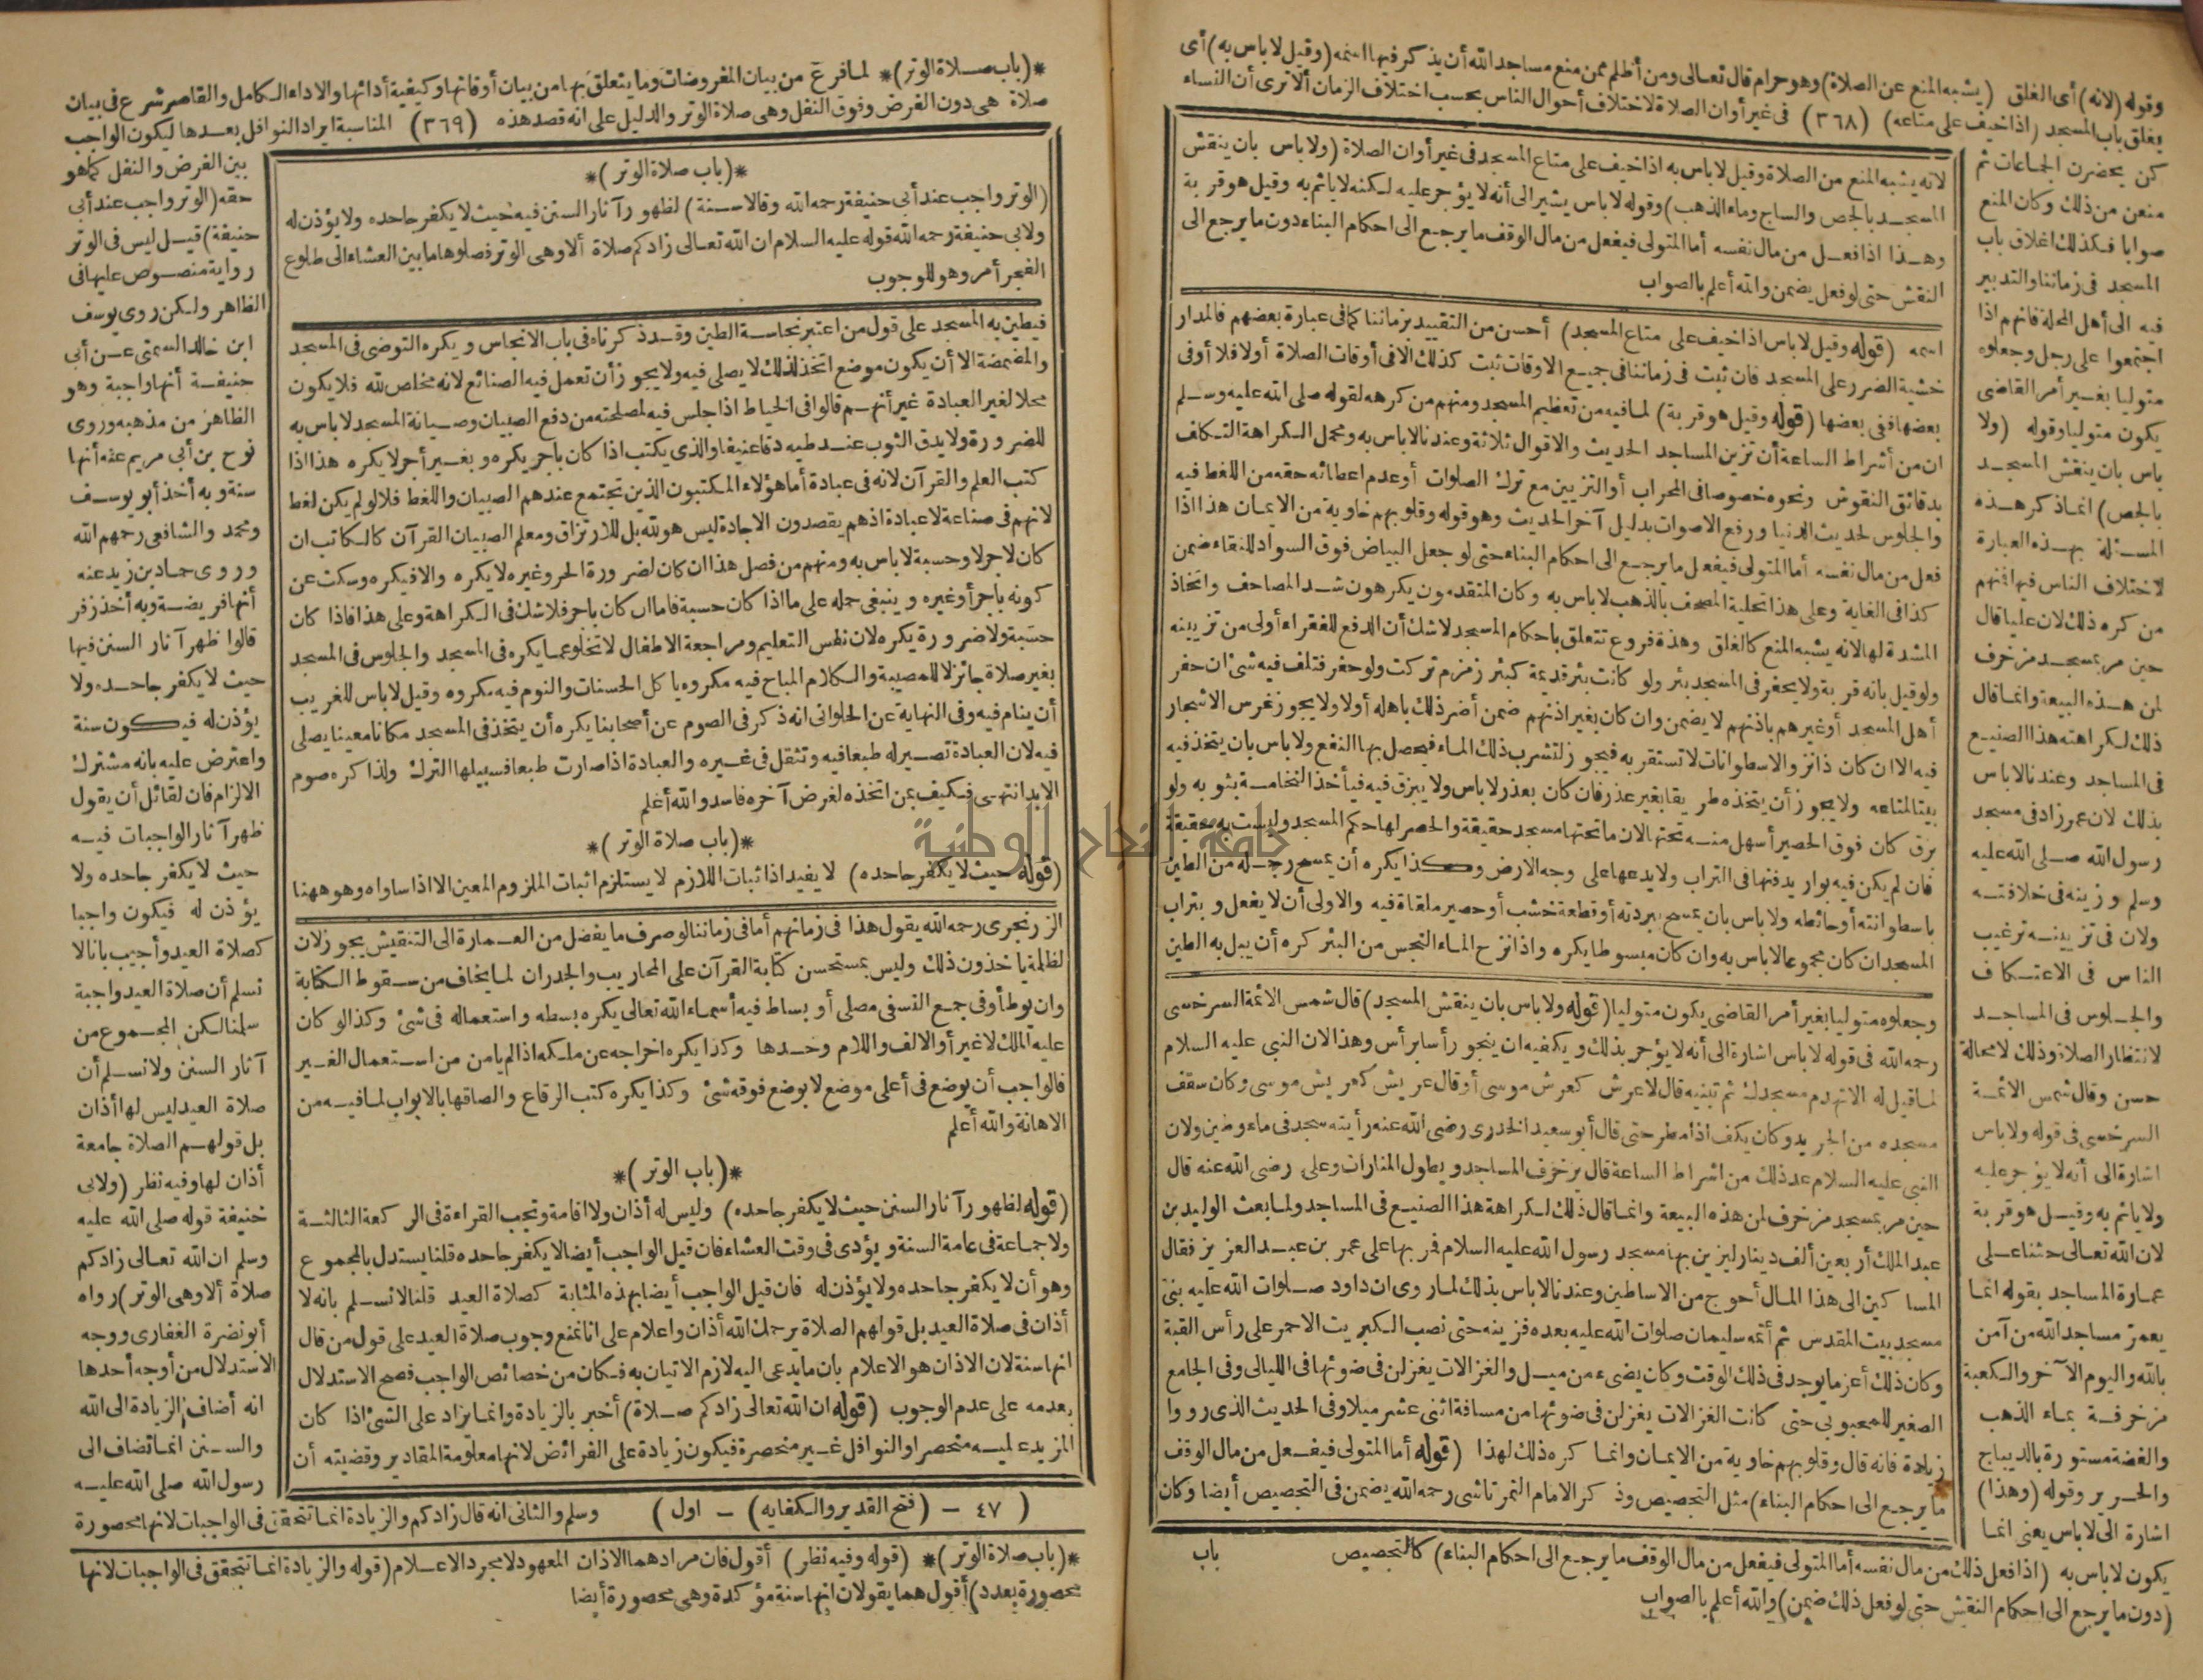 وقوله (لانه) أى الغلق (يشبه المنع عن الصلاة) وهو حرام قال تعالى ومن أظلم ممن منع مساجد الله أن يذكر فيها اسمه (وقيل لا باس به) أى
يغلق باب المسجد (اذا خيف على متاعه) (٣٦٨) فى غير أوان الصلاة لاختلاف أحوال الناس بحسب اختلاف الزمان ألا ترى أن النساء
كن يحضرن الجماعات ثم
منعن من ذلك وكان المنع
صوابا فكذلك اغلاق باب
المسجد فى زماننا والتدبير
فيه الى أهل المحلة فانهم اذا
اجتمعوا على رجل وجعلوه
متوليا بغير أمر القاضى
يكون متوليا وقوله (ولا
باس بان ينقش المسجد
بالجص) انما ذكر هذه
المسئلة بهذه العبارة
لاختلاف الناس فيها فمنهم
من كره ذلك لان عليا قال
حين مر بمسجد مزخرف
لمن هذه البيعة وانما قال
ذلك لكراهته هذا الصنيع
فى المساجد وعندنا لا باس
بذلك لان عمر زاد فى مسجد
رسول الله صلى الله عليه
وسلم وزينه فى خلافته
ولان فى تزيينه ترغيب
الناس فى الاعتكاف
والجلوس فى المساجد
لانتظار الصلاة وذلك لا محالة
حسن وقال شمس الائمة
السرخسى فى قوله ولا باس
اشارة الى أنه لا يؤجر عليه
ولا ياثم به وقيل هو قربة
لان الله تعالى حثنا على
عمارة المساجد بقوله انما
يعمر مساجد الله من آمن
بالله واليوم الآخر والكعبة
مزخرفة بماء الذهب
والفضة مستورة بالديباج
والحرير وقوله (وهذا)
اشارة الى لا باس يعنى انما
لانه يشبه المنع من الصلاة وقيل لا باس به اذا خيف على متاع المسجد فى غير أوان الصلاة (ولا باس بان ينقش
المسجد بالجص والساج وماء الذهب) وقوله لا باس يشير الى أنه لا يؤجر عليه لكنه لا ياثم به وقيل هو قربة
وهذا اذا فعل من مال نفسه أما المتولى فيفعل من مال الوقف ما يرجع الى احكام البناء دون ما يرجع الى
النقش حتى لو فعل يضمن والله أعلم بالصواب
اسمه (قوله وقيل لا باس اذا خيف على متاع المسجد) أحسن من التقييد بزماننا كما فى عبارة بعضهم فالمدار
خشية الضرر على المسجد فان ثبت فى زماننا فى جميع الاوقات ثبت كذلك الا فى أوقات الصلاة أو لا فلا أو فى
بعضها ففى بعضها (قوله وقيل هو قربة) لما فيه من تعظيم المسجد ومنهم من كرهه لقوله صلى الله عليه وسلم
ان من أشراط الساعة أن تزين المساجد الحديث والاقوال ثلاثة وعندنا لا باس به ومحمل الكراهة التكلف
بدقائق النقوش ونحوه خصوصا فى المحراب أو التزيين مع ترك الصلوات أو عدم اعطائه حقه من اللغط فيه
والجلوس لحديث الدنيا ورفع الاصوات بدليل آخر الحديث وهو قوله وقلوبهم خاوية من الايمان هذا اذا
فعل من مال نفسه أما المتولى فيفعل ما يرجع الى احكام البناء حتى لو جعل البياض فوق السواد للنقاء ضمن
كذا فى الغاية وعلى هذا تحلية المصحف بالذهب لا باس به وكان المتقدمون يكرهون شد المصاحف واتخاذ
المشدة لها لانه يشبه المنع كالغلق وهذه فروع تتعلق باحكام المسجد لاشك أن الدفع للفقراء أولى من تزيينه
ولو قيل بانه قربة ولا يحفر فى المسجد بئر ولو كانت بئر قديمة كبئر زمزم تركت ولو حفر فتلف فيه شئ ان حفر
أهل المسجد أو غيرهم باذنهم لا يضمن وان كان بغير اذنهم ضمن أضر ذلك باهله أو لا ولا يجوز غرس الاشجار
فيه الا ان كان ذا نز والاسطوانات لا تستقر به فيجوز لتشرب ذلك الماء فيحصل بها النفع ولا باس بان يتخذ فيه
بيتا لمتاعه ولا يجوز أن يتخذه طريقا بغير عذر فان كان بعذر لا باس ولا يبزق فيه فيأخذ النخامة بثوبه ولو
بزق كان فوق الحصير أسهل منه تحتها لان ما تحتها مسجد حقيقة والحصر لها حكم المسجد وليست به حقيقة
فان لم يكن فيه بوار يدفنها فى التراب ولا يدعها على وجه الارض وكذا يكره أن يمسح رجله من الطين
باسطوانته أو حائطه ولا باس بان يمسح ببردته أو قطعة خشب أو حصير ملقاة فيه والاولى أن لا يفعل وبتراب
المسجد ان كان مجموعا لا باس به وان كان مبسوطا يكره واذا نزح الماء النجس من البئر كره أن يبل به الطين
وجعلوه متوليا بغير أمر القاضى يكون متوليا (قوله ولا باس بان ينقش المسجد) قال شمس الائمة السرخسى
رحمه الله فى قوله لا باس اشارة الى أنه لا يؤجر بذلك ويكفيه ان ينجو رأسا برأس وهذا لان النبى عليه السلام
لما قيل له الا نهدم مسجدك ثم نبنيه قال لا عرش كعرش موسى أو قال عريش كعريش موسى وكان سقف
مسجده من الجريد وكان يكف اذا مطر حتى قال أبو سعيد الخدرى رضى الله عنه رأيته سجد فى ماء وطين ولان
النبى عليه السلام عد ذلك من اشراط الساعة قال يزخرف المساجد ويطول المنارات وعلى رضى الله عنه قال
حين مر بمسجد مزخرف لمن هذه البيعة وانما قال ذلك لكراهة هذا الصنيع فى المساجد ولما بعث الوليد بن
عبد الملك أربعين ألف دينار ليزين بها مسجد رسول الله عليه السلام فمر بها على عمر بن عبد العزيز فقال
المساكين الى هذا المال أحوج من الاساطين وعندنا لا باس بذلك لما روى ان داود صلوات الله عليه بنى
مسجد بيت المقدس ثم أتمه سليمان صلوات الله عليه بعده فزينه حتى نصب الكبريت الاحمر على رأس القبة
وكان ذلك أعز ما يوجد فى ذلك الوقت وكان يضىء من ميل والغزالات يغزلن فى ضوئها فى الليالى وفى الجامع
الصغير للمحبوبى حتى كانت الغزالات يغزلن فى ضوئها من مسافة اثنى عشر ميلا وفى الحديث الذى رووا
زيادة فانه قال وقلوبهم خاوية من الايمان وانما كره ذلك لهذا (قوله أما المتولى فيفعل من مال الوقف
ما يرجع الى احكام البناء) مثل التجصيص وذكر الامام التمرتاشى رحمه الله يضمن فى التجصيص أيضا وكان
يكون لا باس به (اذا فعل ذلك من مال نفسه أما المتولى فيفعل من مال الوقف ما يرجع الى احكام البناء) كالتجصيص باب
(دون ما يرجع الى احكام النقش حتى لو فعل ذلك ضمن) والله أعلم بالصواب
*(باب صلاة الوتر)* لما فرغ من بيان المفروضات وما يتعلق بها من بيان أوقاتها وكيفية أدائها والاداء الكامل والقاصر شرع فى بيان
صلاة هى دون الفرض وفوق النفل وهى صلاة الوتر والدليل على انه قصد هذه (٣٦٩) المناسبة ايراد النوافل بعدها ليكون الواجب
بين الفرض والنفل كما هو
حقه (الوتر واجب عند أبى
حنيفة) قيل ليس فى الوتر
رواية منصوص عليها فى
الظاهر ولكن روى يوسف
ابن خالد السمتى عن أبى
حنيفة أنها واجبة وهو
الظاهر من مذهبه وروى
نوح بن أبى مريم عنه أنها
سنة وبه أخذ أبو يوسف
ومحمد والشافعى رحمهم الله
وروى حماد بن زيد عنه
أنها فريضة وبه أخذ زفر
قالوا ظهر آثار السنن فيها
حيث لا يكفر جاحده ولا
يؤذن له فيكون سنة
واعترض عليه بانه مشترك
الالزام فان لقائل أن يقول
ظهر آثار الواجبات فيه
حيث لا يكفر جاحده ولا
يؤذن له فيكون واجبا
كصلاة العيد وأجيب بانا لا
نسلم أن صلاة العيد واجبة
سلمنا لكن المجموع من
آثار السنن ولا نسلم أن
صلاة العيد ليس لها أذان
بل قولهم الصلاة جامعة
أذان لها وفيه نظر (ولابى
حنيفة قوله صلى الله عليه
وسلم ان الله تعالى زادكم
صلاة ألا وهى الوتر) رواه
أبو نضرة الغفارى ووجه
الاستدلال من أوجه أحدها
انه أضاف الزيادة الى الله
والسنن انما تضاف الى
رسول الله صلى الله عليه
*(باب صلاة الوتر)*
(الوتر واجب عند أبى حنيفة رحمه الله وقالا سنة) لظهور آثار السنن فيه حيث لا يكفر جاحده ولا يؤذن له
ولابى حنيفة رحمه الله قوله عليه السلام ان الله تعالى زادكم صلاة ألا وهى الوتر فصلوها ما بين العشاء الى طلوع
الفجر أمر وهو للوجوب
فيطين به المسجد على قول من اعتبر نجاسة الطين وقد ذكرناه فى باب الانجاس ويكره التوضى فى المسجد
والمضمضة الا أن يكون موضع اتخذ لذلك لا يصلى فيه ولا يجوز أن تعمل فيه الصنائع لانه مخلص لله فلا يكون
محلا لغير العبادة غير أنهم قالوا فى الخياط اذا جلس فيه لمصلحته من دفع الصبيان وصيانة المسجد لا باس به
للضرورة ولا يدق الثوب عند طيه دقا عنيفا والذى يكتب اذا كان بأجر يكره وبغير أجر لا يكره هذا اذا
كتب العلم والقرآن لانه فى عبادة أما هؤلاء المكتبون الذين تجتمع عندهم الصبيان واللغط فلا لو لم يكن لغط
لانهم فى صناعة لا عبادة اذ هم يقصدون الاجادة ليس هو لله بل للارتزاق ومعلم الصبيان القرآن كالكاتب ان
كان لاجر لا وحسبة لا باس به ومنهم من فصل هذا ان كان لضرورة الحر وغيره لا يكره والا فيكره وسكت عن
كونه بأجر أو غيره وينبغى حمله على ما اذا كان حسبة فاما ان كان باجر فلا شك فى الكراهة وعلى هذا فاذا كان
حسبة ولا ضرورة يكره لان نفس التعليم ومراجعة الاطفال لا تخلو عما يكره فى المسجد والجلوس فى المسجد
بغير صلاة جائز لا للمصيبة والكلام المباح فيه مكروه ياكل الحسنات والنوم فيه مكروه وقيل لا باس للغريب
أن ينام فيه وفى النهاية عن الحلوانى انه ذكر فى الصوم عن أصحابنا يكره أن يتخذ فى المسجد مكانا معينا يصلى
فيه لان العبادة تصير له طبعا فيه وتثقل فى غيره والعبادة اذا صارت طبعا فسبيلها الترك ولذا كره صوم
الابد انتهى فكيف بمن اتخذه لغرض آخره فاسد والله أعلم
*(باب صلاة الوتر)*
(قوله حيث لا يكفر جاحده) لا يفيد اذ اثبات اللازم لا يستلزم اثبات الملزوم المعين الا اذا ساواه وهو ههنا
الزرنجرى رحمه الله يقول هذا فى زمانهم أما فى زماننا لو صرف ما يفضل من العمارة الى التنقيش يجوز لان
الظلمة ياخذون ذلك وليس بمستحسن كتابة القرآن على المحاريب والجدران لما يخاف من سقوط الكتابة
وان يوطأ وفى جمع النسفى مصلى أو بساط فيه أسماء الله تعالى يكره بسطه واستعماله فى شئ وكذا لو كان
عليه الملك لا غير أو الالف واللام وحدها وكذا يكره اخراجه عن ملكه اذا لم يامن من استعمال الغير
فالواجب أن يوضع فى أعلى موضع لا يوضع فوقه شئ وكذا يكره كتب الرقاع والصاقها بالابواب لما فيه من
الاهانة والله أعلم
*(باب الوتر)*
(قوله لظهور آثار السنن حيث لا يكفر جاحده) وليس له أذان ولا اقامة وتجب القراءة فى الركعة الثالثة
ولا جماعة فى عامة السنة ويؤدى فى وقت العشاء فان قيل الواجب أيضا لا يكفر جاحده قلنا يستدل بالمجموع
وهو أن لا يكفر جاحده ولا يؤذن له فان قيل الواجب أيضا بهذه المثابة كصلاة العيد قلنا لا نسلم بانه لا
أذان فى صلاة العيد بل قولهم الصلاة يرحمك الله أذان واعلام على انا نمنع وجوب صلاة العيد على قول من قال
انها سنة لان الاذان هو الاعلام بان ما يدعى اليه لازم الاتيان به فكان من خصائص الواجب فصح الاستدلال
بعدمه على عدم الوجوب (قوله ان الله تعالى زادكم صلاة) أخبر بالزيادة وانما يزاد على الشئ اذا كان
المزيد عليه منحصرا والنوافل غير منحصرة فيكون زيادة على الفرائض لانها معلومة المقادير وقضيته أن
(٤٧ - (فتح القدير والكفايه) - اول) وسلم والثانى انه قال زادكم والزيادة انما تتحقق فى الواجبات لانها محصورة
*(باب صلاة الوتر)* (قوله وفيه نظر) أقول فان مرادهما الاذان المعهود لا مجرد الاعلام (قوله والزيادة انما تتحقق فى الواجبات لانها
محصورة بعدد) أقول هما يقولان انها سنة مؤكدة وهى محصورة أيضا
جامعة النجاح الوطنية